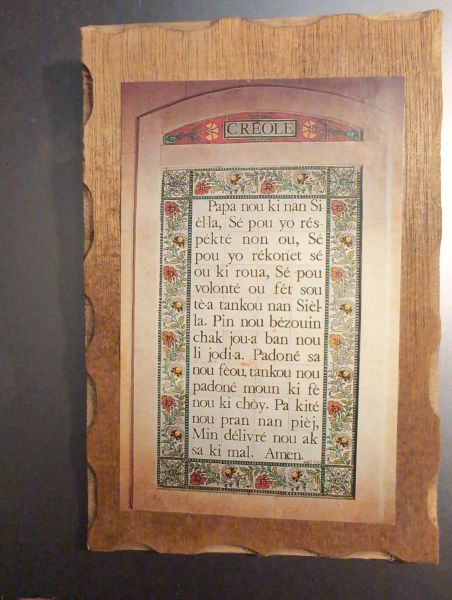 CRÉOLE
Papa nou ki nan Si
èl-la, Sé pou yo rés-
pékté non ou, Sé
pou yo rékonèt sé
ou ki roua, Sé pou
volonté ou fèt sou
tè-a tankou nan Sièl-
la. Pin nou bézouin
chak jou-a ban nou
li jodi-a. Padoné sa
nou fèou, tankou nou
padoné moun ki fè
nou ki chòy. Pa kité
nou pran nan pièj,
Min délivré nou ak
sa ki mal. Amen.